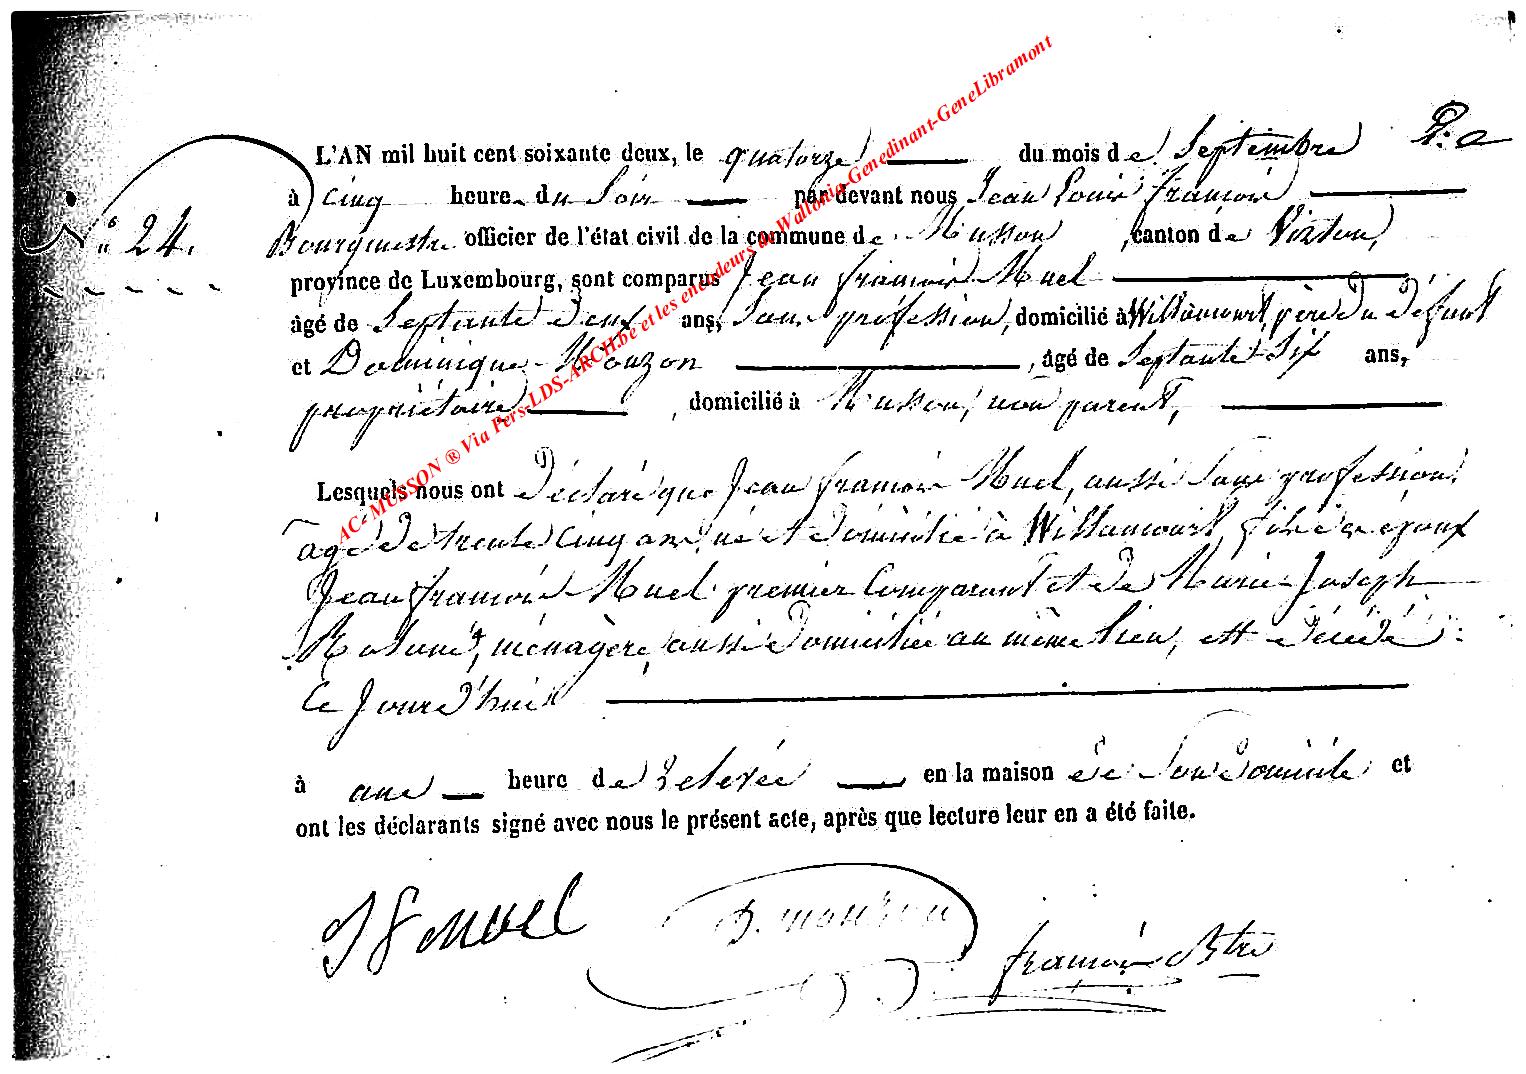 L'AN mil huit cent soixante deux, le quatorze du mois de Septembre
à cinq heure du Soir par devant nous Jean Louis François
n° 24. Bourgmestre officier de l'état civil de la commune de Musson, canton de Virton,
province de Luxembourg, sont comparus Jean françois Muel
âgé de Septante deux ans, Sans profession, domicilié à Willancourt, père du défunt
et Dominique Mouzon, âgé de Septante Six ans,
propriétaire, domicilié à Musson, non parent,
Lesquels nous ont déclaré que Jean françois Muel, aussi Sans profession
âgé de trente cinq ans né et domicilié à Willancourt, fils des époux
Jean françois Muel premier Comparant et de Marie Joseph
ménagère, aussi domiciliée au même lieu, est décédé
Ce Jourd'hui
à une heure de relevée en la maison de Son domicile et
ont les déclarants signé avec nous le présent acte, après que lecture leur en a été faite.
J F Muel D. mouzon
françois Btre
AC-MUSSON ® Via Pers-LDS-ARCH.be et les encodeurs de Wallonia-Genedinant-GeneLibramont